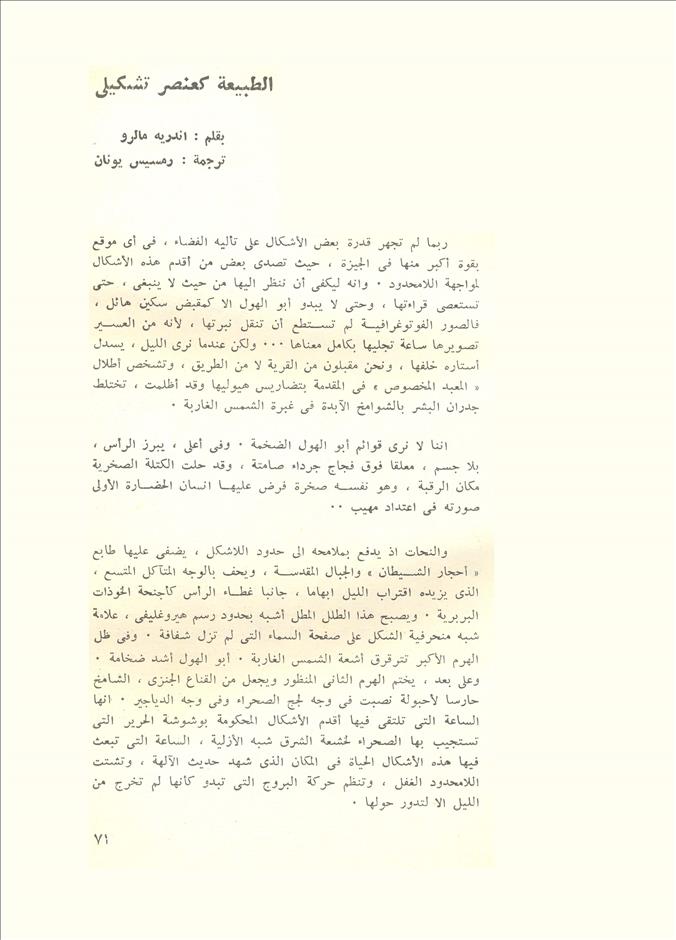 الطبيعة كعنصر تشكيلى
بقلم : اندريه مالرو
ترجمة : رمسيس يونان
ربما لم تجهر قدرة بعض الأشكال على تأليه الفضاء ، فى أى موقع
بقوة أكبر منها فى الجيزة ، حيث تصدى بعض من أقدم هذه الأشكال
لمواجهة اللامحدود . وانه ليكفى أن ننظر اليها من حيث لا ينبغى ، حتى
تستعصى قراءتها ، وحتى لا يبدو أبو الهول الا كمقبض سكين هائل ،
فالصور الفوتوغرافيـة لم تسـتطع أن تنقل نبرتها ، لأنه من العسـير
تصويرها ساعة تجليها بكامل معناها ... ولكن عندما نرى الليل ، يسدل
أستاره خلفها ، ونحن مقبلون من القرية لا من الطريق ، وتشخص أطلال
« المعبد المخصوص » فى المقدمة بتضاريس هيوليها وقد أظلمت ، تختلط
جدران البشر بالشوامخ الآبدة فى غبرة الشمس الغاربة .
اننا لا نرى قوائم أبو الهول الضخمة . وفى أعلى ، يبرز الرأس ،
بلا جسم ، معلقا فوق فجاج جرداء صامتة ، وقد حلت الكتلة الصخرية
مكان الرقبة ، وهو نفسـه صخرة فرض عليهـا انسان الحضـارة الأولى
صورته فى اعتداد مهيب ..
والنحات اذ يدفع بملامحه الى حدود اللاشكل ، يضفى عليها طابع
« أحجار الشـيطان » والجبال المقدسـة ، ويحف بالوجه المتآكل المتسع ،
الذى يزيده اقتراب الليل ابهاما ، جانبا غطـاء الرأس كأجنحة الخوذات
البربرية . ويصبح هذا الطلل المطل أشبه بحدود رسم هيروغليفى ، علامة
شبه منحرفية الشكل على صفحة السماء التى لم تزل شفافة . وفى ظل
الهرم الأكبر تترقرق أشعة الشمس الغاربة . أبو الهول أشد ضخامة .
وعلى بعد ، يختم الهرم الثانى المنظور ويجعل من القناع الجنزى ، الشامخ
حارسا لأحبولة نصبت فى وجه لجج الصحراء وفى وجه الدياجير . انها
الساعة التى تلتقى فيها أقدم الأشكال المحكومة بوشوشة الحرير التى
تستجيب بها الصحراء لخشعة الشرق شبه الأزلية ، الساعة التى تبعث
فيها هذه الأشكال الحياة فى المكان الذى شهد حديث الآلهة ، وتشتت
اللامحدود الغفل ، وتنظم حركة البروج التى تبدو كأنها لم تخرج من
الليل الا لتدور حولها .
٧١